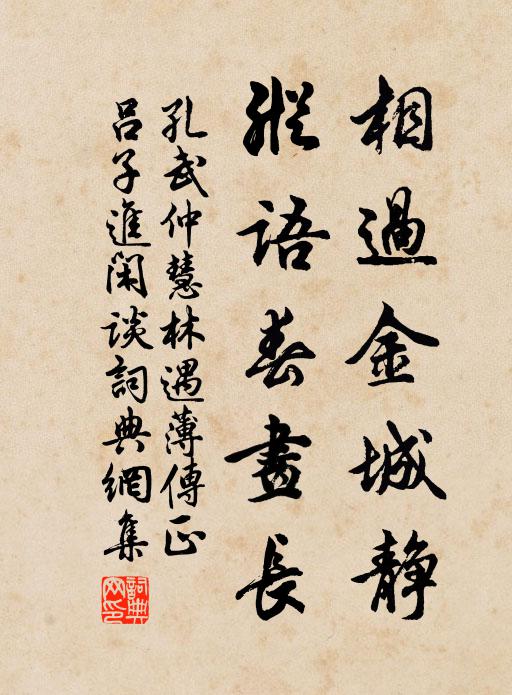 相過金城静
縱語春晝長
孔武仲慧林遇薄傳正
吕子進閑談詞典網集
詞典網印